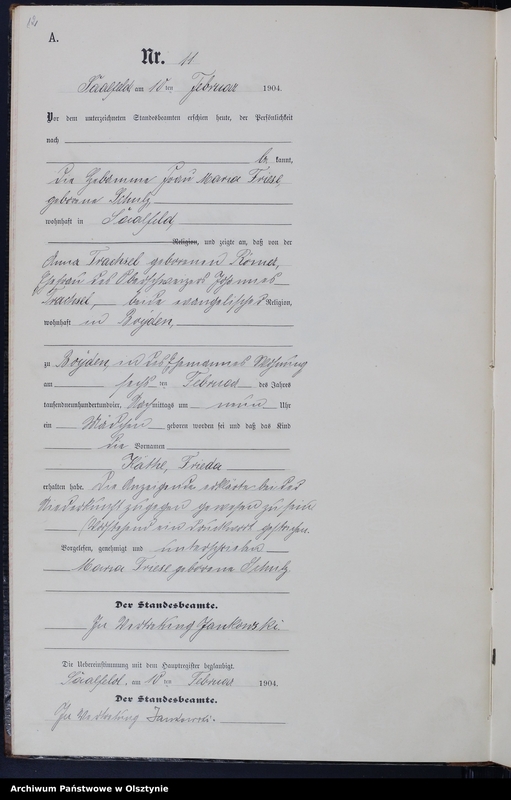 A.
Nr. 11
Saalfeld am 10ten Februar 1904.
Vor dem unterzeichneten Standesbeamten erschien heute, der Persönlichkeit
nach
be kannt,
die Hebamme Frau Maria Friese
geborene Schulz
wohnhaft in Saalfeld,
Religion, und zeigte an, daß von der
Anna Trachsel geborenen Römer,
Ehefrau des Oberschweizers Johannes
Trachsel, beide evangelischer Religion,
wohnhaft in Boyden,
zu Boyden in des Ehemannes Wohnung
am sechsten Februar des Jahres
tausendneunhundertundvier, Nachmittags um neun Uhr
ein Mädchen geboren worden sei und daß das Kind
die Vornamen
Käthe, Frieda
erhalten habe. Die Anzeigende erklärte bei der
Niederkunft zugegen gewesen zu sein
Vorstehend ein Druckwort gestrichen.
Vorgelesen, genehmigt und unterschrieben
Maria Friese geborene Schulz
Der Standesbeamte.
In Vertretung Jankowski.
Die Uebereinstimmung mit dem Hauptregister beglaubigt.
Saalfeld, am 10ten Februar 1904.
Der Standesbeamte.
In Vertretung Jankowski.
Archiwum Państwowe w Olsztynie